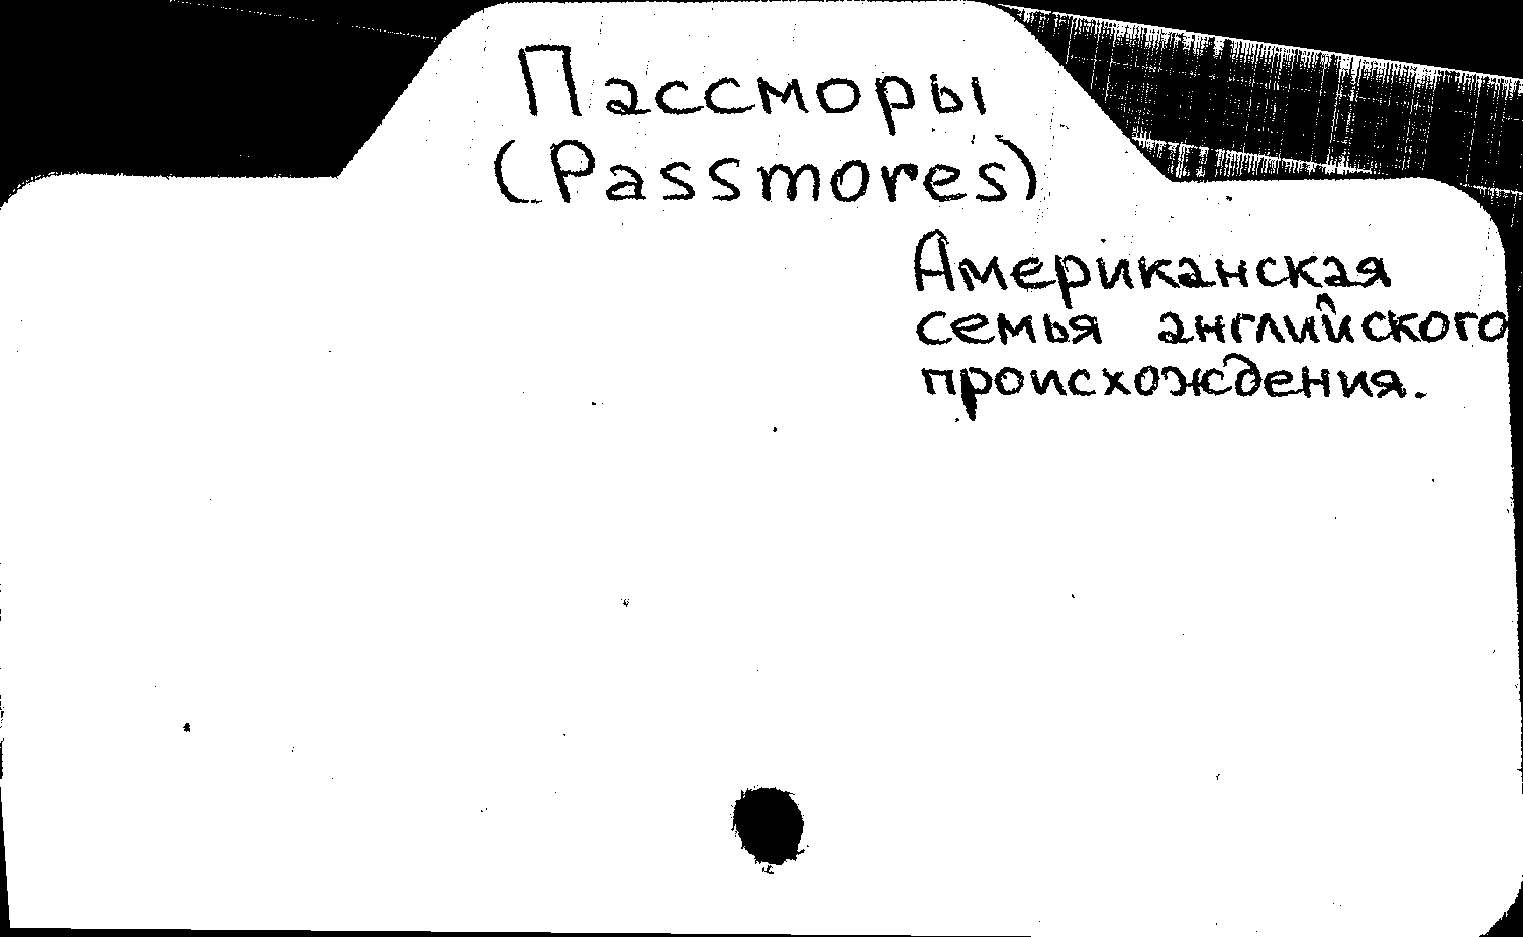 Пассморы
(Passmores)
Американская
семья английского
происхождения.